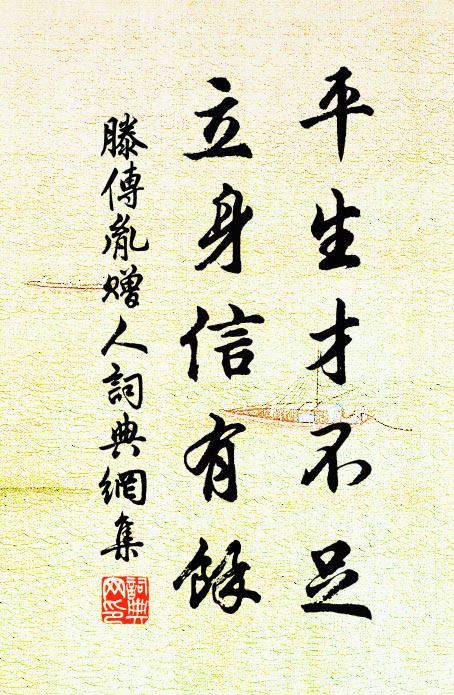 平生才不足
立身信有餘
滕傳胤贈人詞典網集
詞典
网